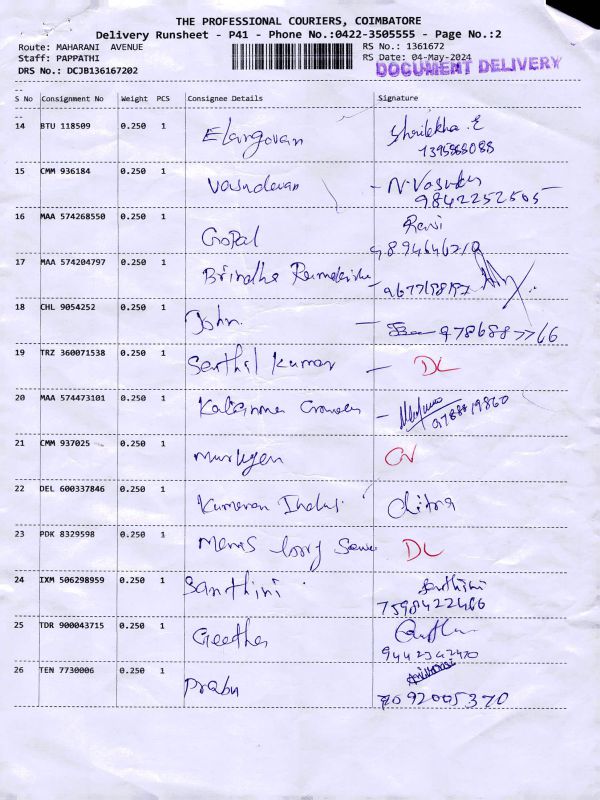 THE PROFESSIONAL COURIERS, COIMBATORE
Delivery Runsheet - P41 - Phone No.:0422-3505555 - Page No.:2
Route: MAHARANI AVENUE RS No.: 1361672
Staff: PAPPATHI RS Date: 04-May-2024
DRS No.: DCJB136167202 DOCUMENT DELIVERY
S No Consignment No Weight PCS Consignee Details Signature
14 BTU 118509 0.250 1 Elangovan Shrilekha.E
15 CMM 936184 0.250 1 Vasudevan - N.Vasudev
9842252505
16 MAA 574268550 0.250 1 Gopal Ravi
17 MAA 574204797 0.250 1 Brindha
18 CHL 9054252 0.250 1 John. - 9786887766
19 TRZ 360071538 0.250 1 Senthil Kumar - DL
20 MAA 574473101 0.250 1
21 CMM 937025 0.250 1 Murugan
22 DEL 600337846 0.250 1 Kumaran Indus. Chitra
23 PDK 8329598 0.250 1 DL
24 IXM 506298959 0.250 1 Santhini Santhini
7598422466
25 TDR 900043715 0.250 1 Geetha
9442342470
26 TEN 7730006 0.250 1 Prabu
7092005370